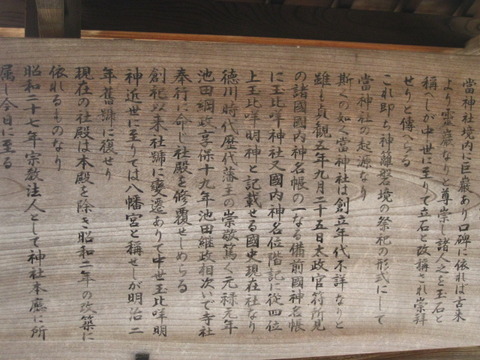 當神社境内に巨巌あり口碑に依れば古来
より霊巌なりと尊崇し諸人之を玉石と
稱へしが中世に至りて立石と改稱され崇拜
せりと傳へらる
これ即ち神離磐境の祭祀の形式にして
當神社の起源なり
斯くの如く當神社は創立年代不詳なりと
雖も貞観五年九月二十五日太政官符所見
の諸國國内神名帳の一なる備前國神名帳
に玉比咩神社又國内神名位階記に從四位
上玉比咩明神と記載せる國史現在社なり
徳川時代歴代藩主の崇敬篤く元禄元年
池田綱政享保十九年池田継政相次いで寺社
奉行に命し社殿を修覆せしめらる
創祀以来社號に変遷あつて中世玉比咩明
神近世に至りては八幡宮と稱せしが明治二
年舊號に復せり
現在の社殿は本殿を除き昭和二年の改築に
依れるものなり
昭和二十七年宗教法人として神社本廳に所
属し今日に至る